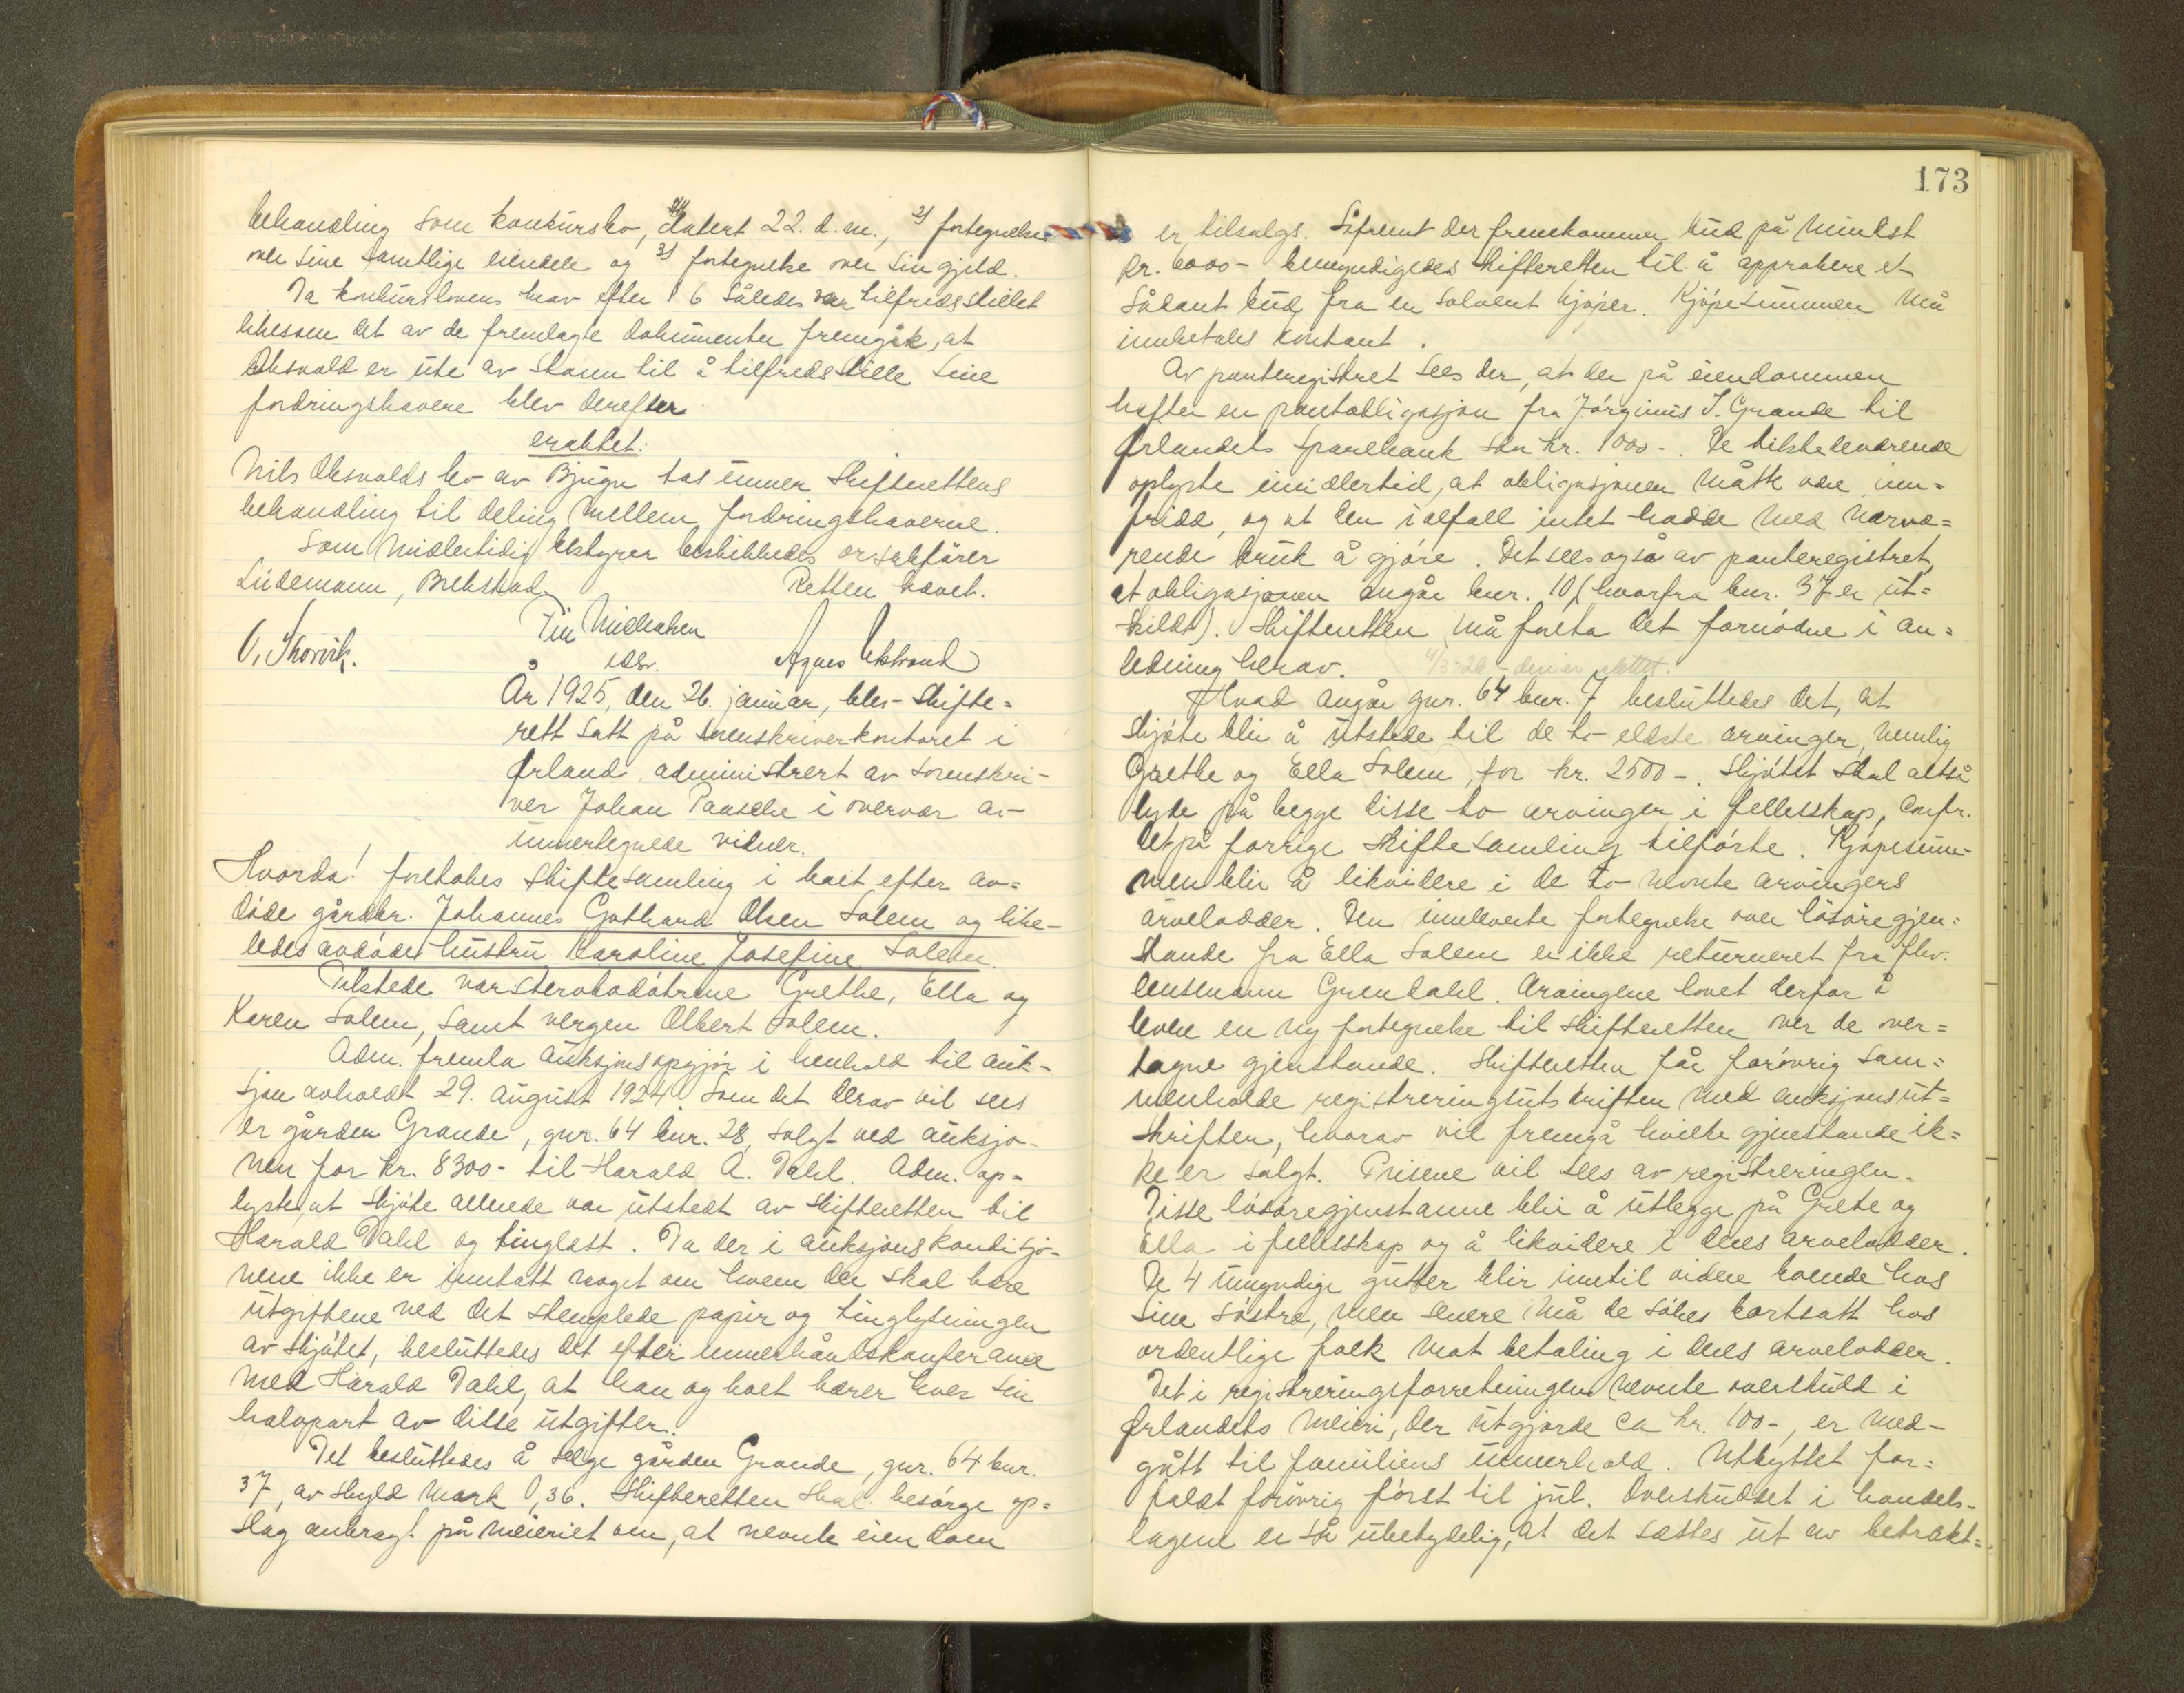 behandling som konkursbo, datert 22. d.m., 2) fortegnelse
over sine samtlige eiendele og 3) fortegnelse over sin gjeld.
Da konkurslovens krav efter § 6 således var tilfredsstillet
likesom det av de fremlagte dokumenter fremgik, at
Oksvold er ute av stann til å tilfredsstille sine
fordringshavere blev derefter
eraktet:
Nils Oksvolds bo av Bjugn tas unner skifterettens
behandling til deling mellem fordringshaverne.
Som midlertidig bestyrer beskikkedes orsakfører
Lüdemann, Brekstad. Retten hævet.
O. Skorvik. Agnes Ukstrand
År 1925, den 26. januar, blev skifte=
rett satt på sorenskriverkontoret i
Ørland, administrert av sorenskri-
ver Johan Paasche i overvær av
unnertegnede vidner.
Hvorda! foretokes skiftesamling i boet efter av=
døde gårdbr. Johannes Gothard Olsen Solem og like-
ledes avdøde hustru Karoline Josefine Solem.
Tilstede var stervbodøtrene Grethe, Ella og
Karen Solem, samt vergen Albert Solem.
Adm. fremla auksjonsopgjør i henhold til auk-
sjon avholdt 29. august 1924. Som det derav vil sees
er gården Grande, gnr. 64 bnr. 28, solgt ved auksjo-
nen for kr. 8300- til Harald A. Dahl. Adm. op=
lyste, at skjøte allerede var utstedt av skifteretten til
Harald Dahl og tinglæst. Da der i auksjonskondisjo-
nene ikke er inntatt noget om hvem der skal bære
utgiftene ved det stemplede papir og tinglysningen
av skjøtet, besluttedes det efter unnerhåndskonferance
med Harald Dahl, at han og boet bærer hver sin
halvpart av disse utgifter.
Det besluttedes å selge gården Grande, gnr. 64 bnr.
37, av skyld mark 0,36. Skifteretten skal besørge op=
slag anbragt på meieriet om, at nevnte eiendom
173
er tilsalgs. Såfremt der fremkommer bud på minst
kr. 6000- bemyndigedes skifteretten til å approbere et
sådant bud fra en solvent kjøper. Kjøpesummen må
innbetales kontant.
Av panteregistret sees der, at der på eiendommen
hefter en pantobligasjon fra Jørginus J. Grande til
Ørlandets Sparebank stor kr. 1000-. De tilstedeværende
oplyste imidlertid, at obligasjonen måtte være inn=
fridd, og at den i alfall intet hadde med nærvæ=
rende bruk å gjøre. Det sees også av panteregistret,
at obligasjonen angår bnr. 10 (hvorfra bnr. 37 er ut=
skildt). Skifteretten må foreta det fornødne i an=
ledning herav. 4/3-26 - den er slettet.
Hvad angår gnr. 64 bnr. 7 besluttedes det, at
skjøte blir å utstede til de to eldste arvinger, nemlig
Grethe og Ella Solem, for kr. 2500-. Skjøtet skal altså
lyde på begge disse to arvinger i fellesskap, confr.
det på forrige skiftesamling tilførte. Kjøpesum-
men blir å likvidere i de to nevnte arvingers
arvelodder. Den innleverte fortegnelse over løsøregjen=
stande fra Ella Solem er ikke returneret fra fhv.
lensmann Grendahl. Arvingene lovet derfor å
levere en ny fortegnelse til skifteretten over de over=
tagne gjenstande. Skifteretten får forøvrig sam=
menholde registreringsutskriften med auksjonsut=
skriften, hvorav vil fremgå hvilke gjenstande ik=
ke er solgt. Prisene vil sees av registreringen.
Disse løsøregjenstanne blir å utlegge på Grete og
Ella i fellesskap og å likvidere i deres arvelodder.
De 4 umyndige gutter blir inntil videre boende hos
sine søstre, men senere må de søkes bortsatt hos
ordentlige folk mot betaling i deres arvelodder.
Det i registreringsforretningen nevnte overskudd i
Ørlandets meieri, der utgjorde ca kr. 100-, er med-
gått til familiens unnerhold. Utbyttet for=
faldt forøvrig først til jul. Overskuddet i handels-
lagene er så ubetydelig, at det sættes ut av betrakt=